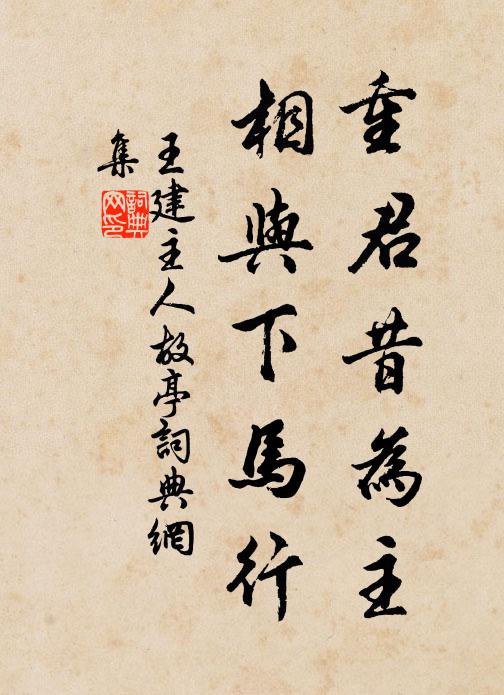 重君昔為主
相與下馬行
王建主人故亭詞典網
集
詞典
网印